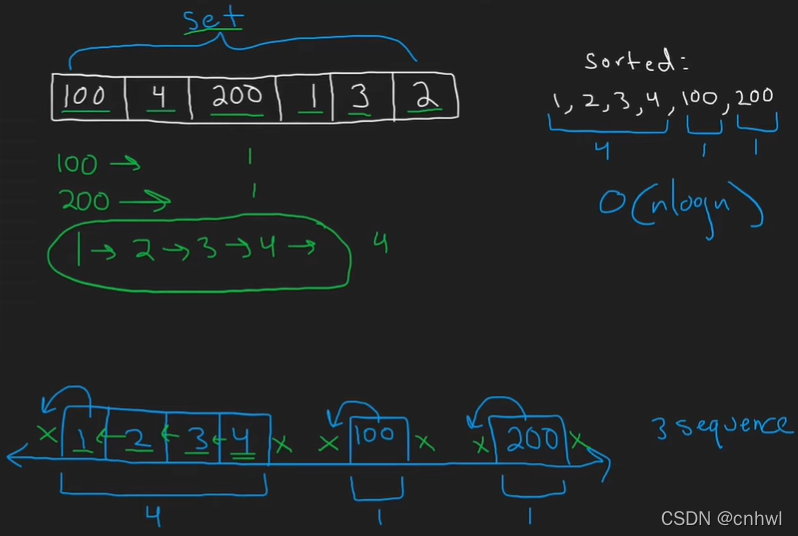 set
100 4 200 1 3 2
sorted:
1, 2, 3, 4, 100, 200
4 1 1
O(nlogn)
100 → 1
200 → 1
1 → 2 → 3 → 4 → 4
x 1 ← 2 ← 3 ← 4 x x 100 x x 200 x
4 1 1
3 sequence
CSDN @cnhwl